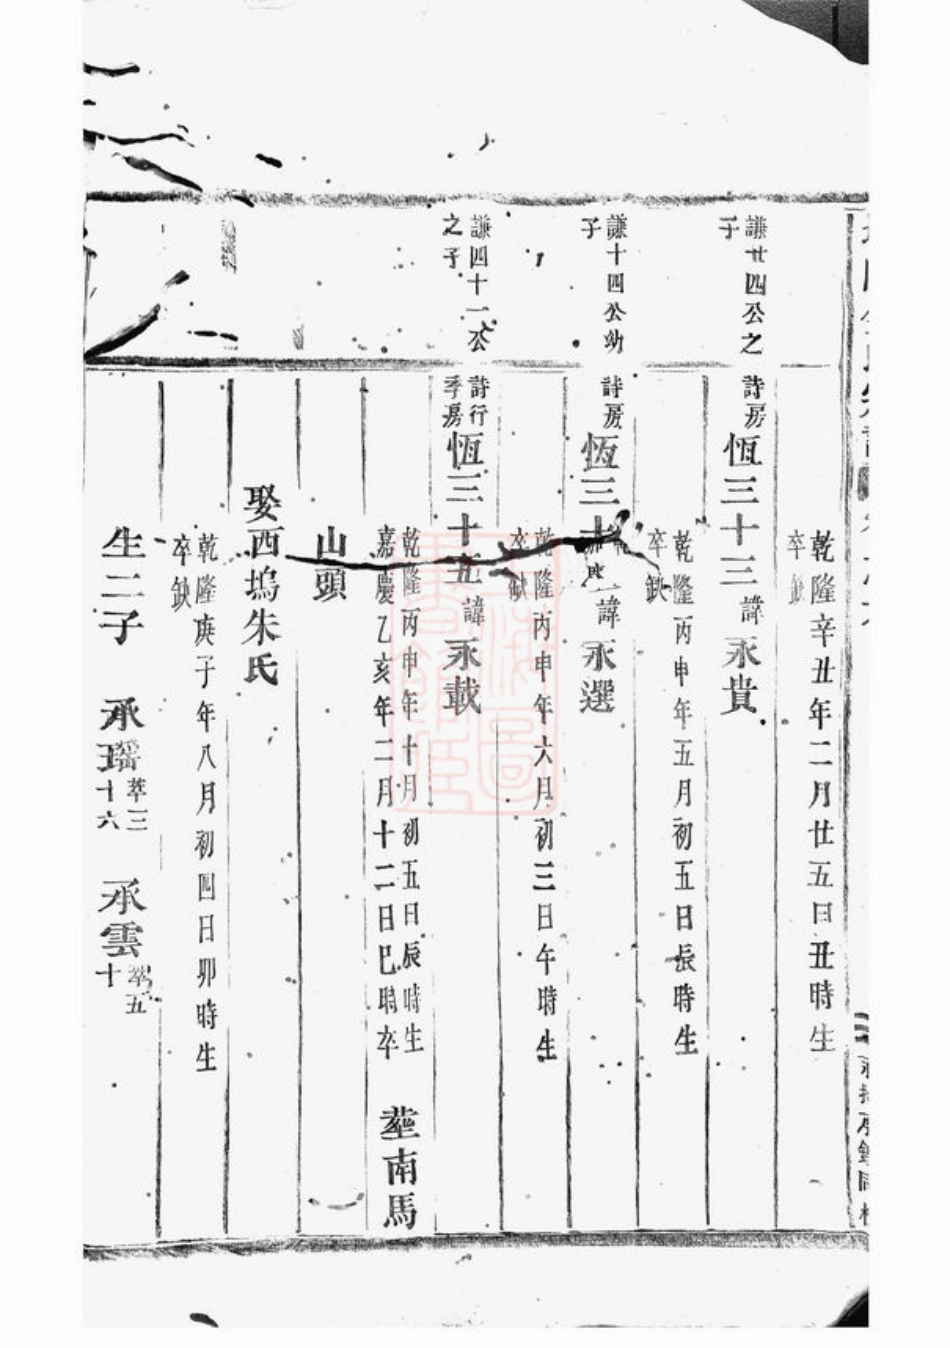 謙廿四公之
子
詩房
恆三十三諱永貴
乾隆辛丑年二月廿五日丑時生
卒
謙十四公幼
子
詩房
恆三十諱永選
乾隆丙申年五月初五日長時生
卒缺
謙四十一公
之子
詩行
季房
恆三十五諱永載
乾隆丙申年六月初三日午時生
卒缺
乾隆丙申年十月初五日辰時生
嘉慶乙亥年二月十二日巳時卒
塟南馬
山頭
娶西塢朱氏
乾隆庚子年八月初四日卯時生
卒缺
生二子 承瑞 萃三十六 承雲 萃五十